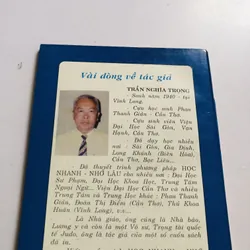 Vài dòng về tác giả
TRẦN NGHĨA TRỌNG
- Sanh năm 1940 tại
Vĩnh Long.
- Cựu học sinh Phan
Thanh Giản - Cần Thơ.
- Cựu sinh viên Viện
Đại Học Sài Gòn, Vạn
Hạnh, Cần Thơ.
- Đã dạy học nhiều
nơi: Sài Gòn, Gia Định,
Long Khánh (Biên Hòa),
Cần Thơ, Bạc Liêu...
Đã thuyết trình phương pháp HỌC
NHANH - NHỚ LÂU cho nhiều nơi: Đại Học
Sư Phạm, Đại Học Khoa Học, Trung Tâm
Ngoại Ngữ... Viện Đại Học Cần Thơ và nhiều
Trung Tâm và Trung Học khác: Phan Thanh
Giản, Đoàn Thị Điểm (Cần Thơ), Thủ Khoa
Huân (Vĩnh Long), v.v...
Là Nhà giáo, ông cũng là Nhà báo,
Lương y và còn là một Võ sư, Trọng tài quốc
tế Judo, ông là tác giả của một số sách
đã in.